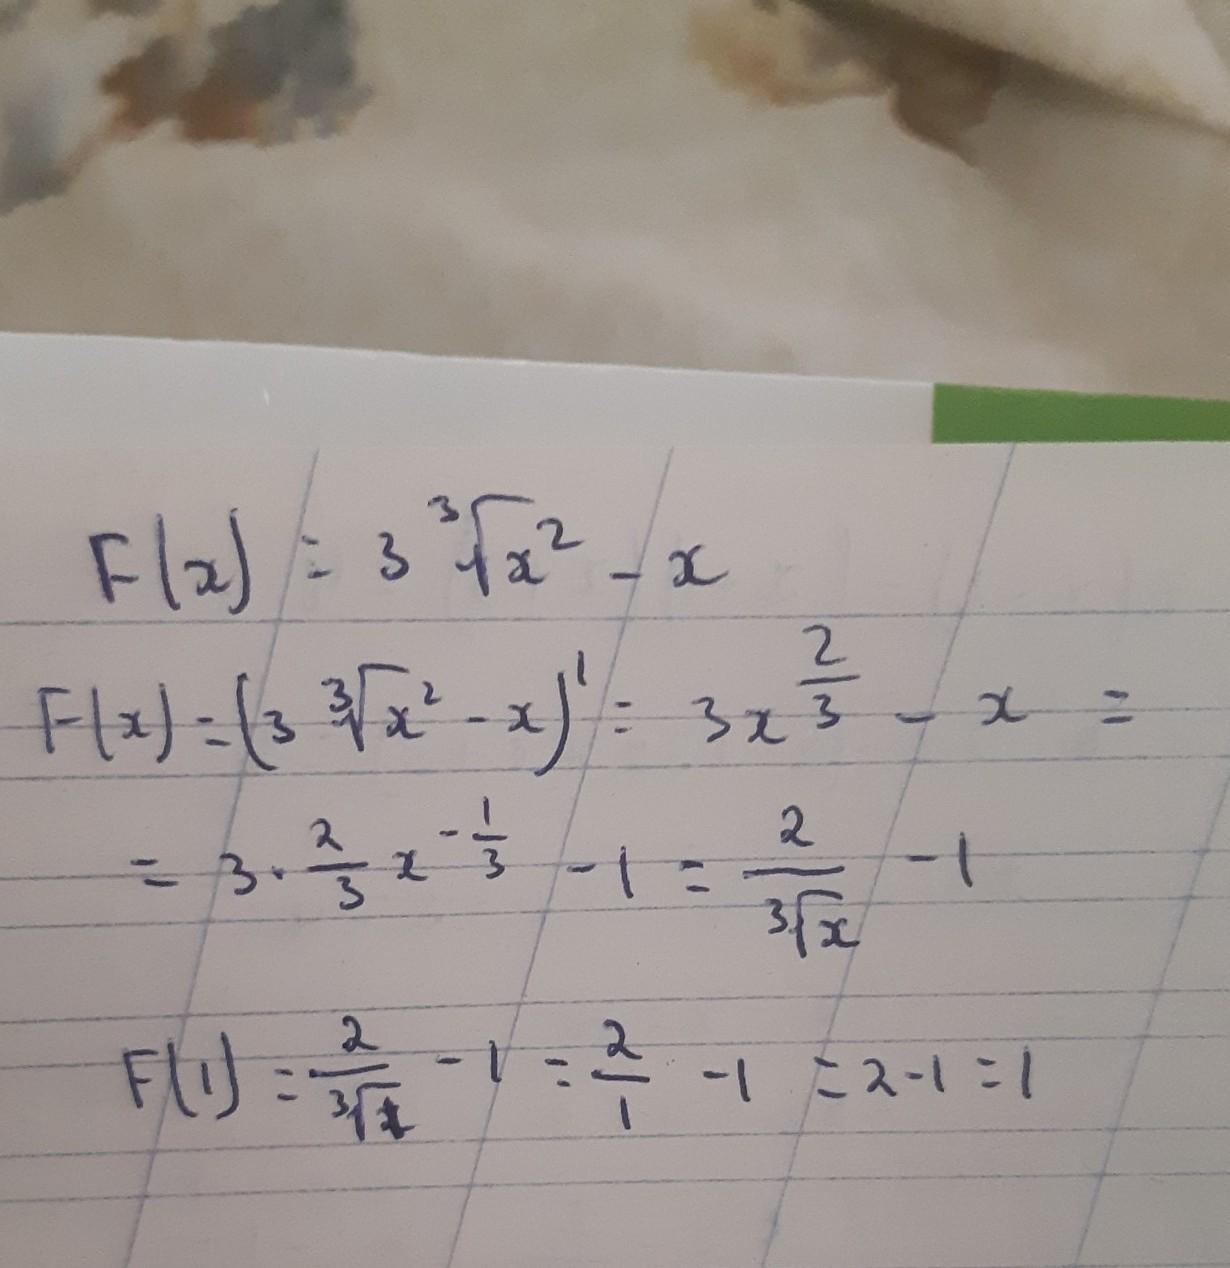 F(x) = 3 ∛x² - x
F(x) = (3 ∛x² - x)' = 3x^(2/3) - x =
= 3 · 2/3 x^(-1/3) - 1 = 2/∛x - 1
F(1) = 2/∛1 - 1 = 2/1 - 1 = 2-1 = 1